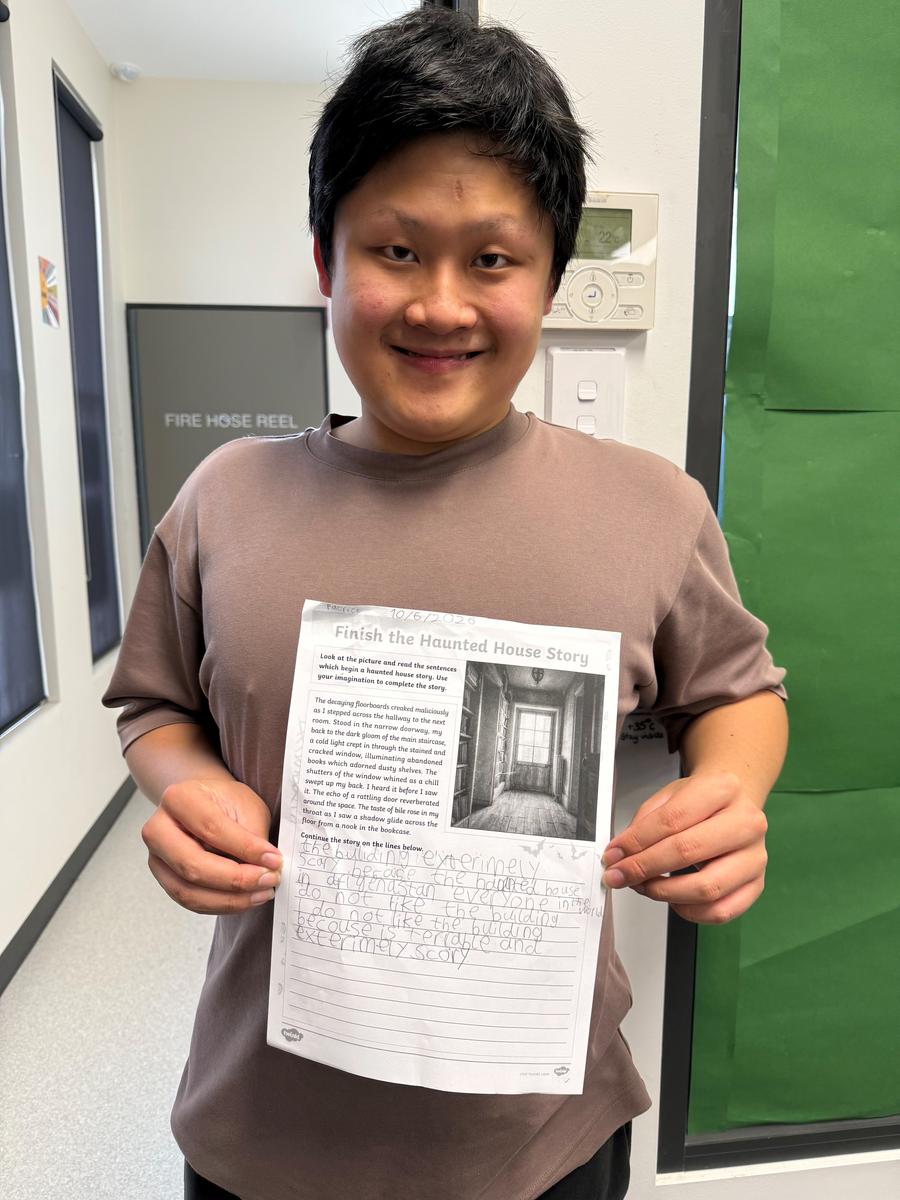 22°c
FIRE HOSE REEL
10/6/2026
Finish the Haunted House Story
Look at the picture and read the sentences
which begin a haunted house story. Use
your imagination to complete the story.
The decaying floorboards creaked maliciously
as I stepped across the hallway to the next
room. Stood in the narrow doorway, my
back to the dark gloom of the main staircase,
a cold light crept in through the stained and
cracked window, illuminating abandoned
books which adorned dusty shelves. The
shutters of the window whined as a chill
swept up my back. I heard it before I saw
it. The echo of a rattling door reverberated
around the space. The taste of bile rose in my
throat as I saw a shadow glide across the
floor from a nook in the bookcase.
Continue the story on the lines below.
the building exterimely
scary because the haunted house
in afigendstan everyone in the world
do not like the building
I do not like the building
becouse is terrable and
exterimely scory
twinkl
visit twinkl.com
twinkl
+35°c
stay inside